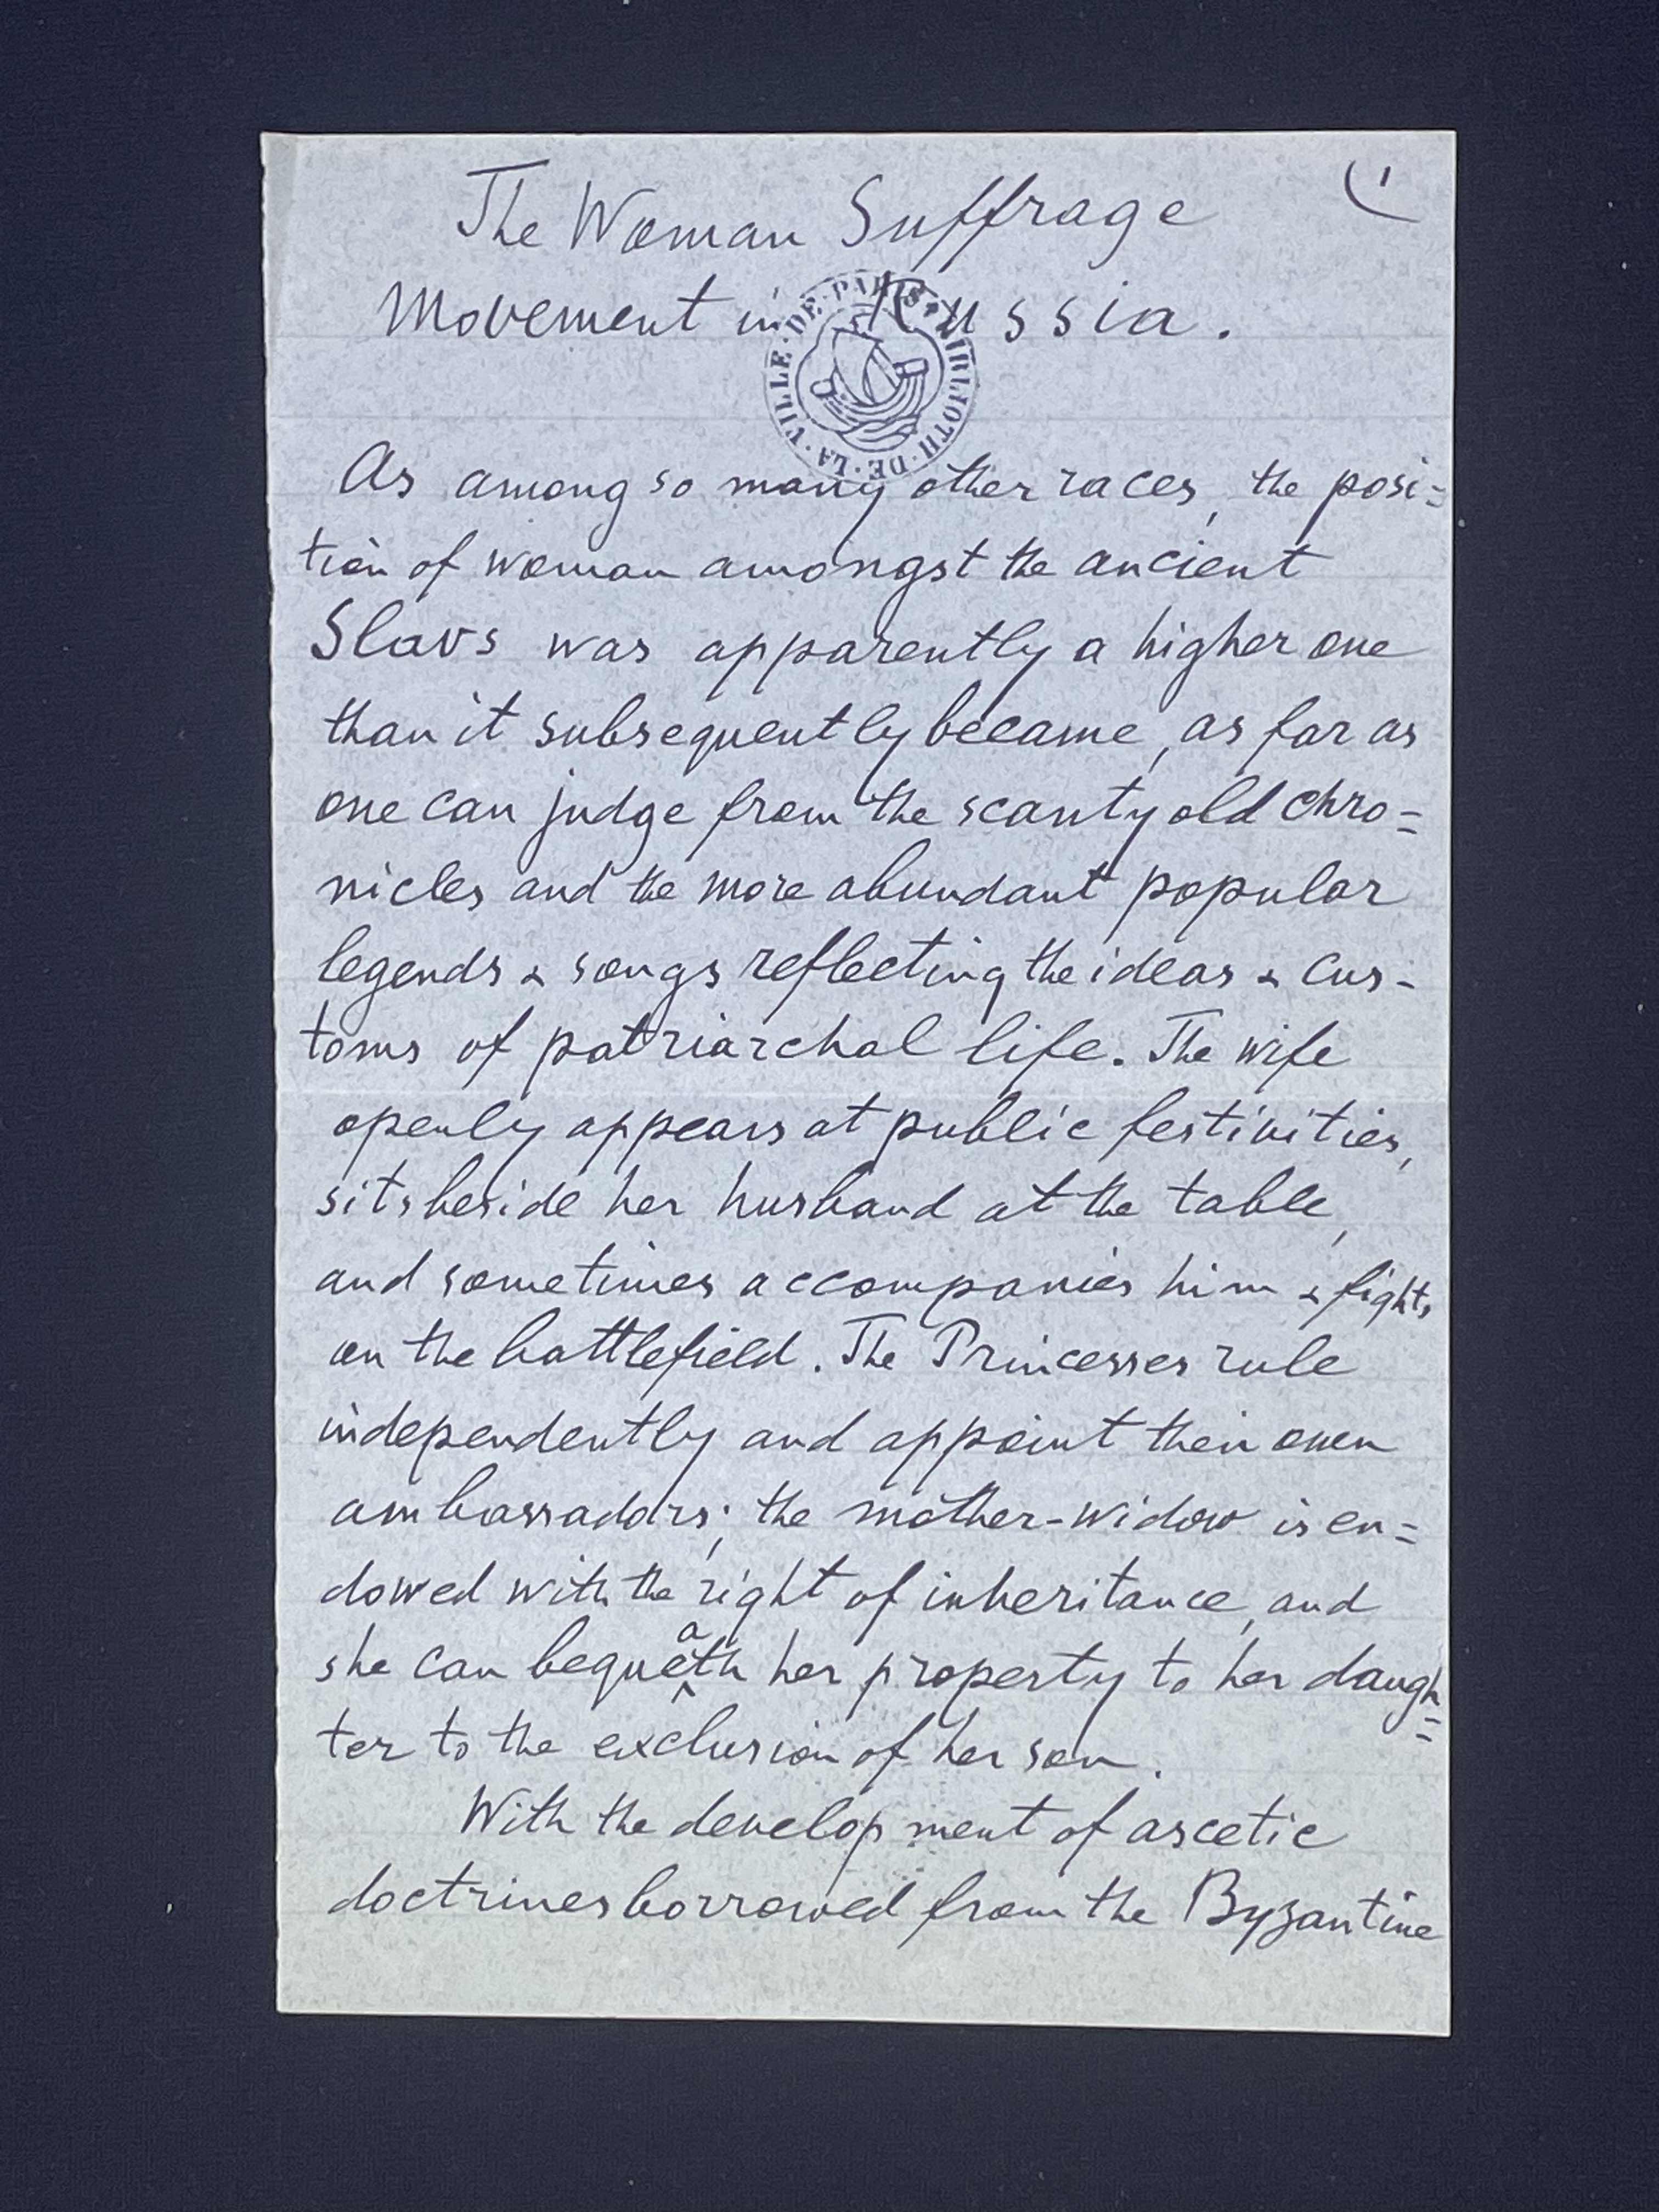 1
The Woman Suffrage
Movement in Russia.
BIBLIOTH · DE · LA · VILLE · DE · PARIS
As among so many other races, the posi=
tion of woman amongst the ancient
Slavs was apparently a higher one
than it subsequently became, as far as
one can judge from the scanty old chro=
nicles and the more abundant popular
legends & songs reflecting the ideas & cus-
toms of patriarchal life. The wife
openly appears at public festivities,
sits beside her husband at the table,
and sometimes accompanies him & fights
on the battlefield. The Princesses rule
independently and appoint their own
ambassadors; the mother-widow is en=
dowed with the right of inheritance, and
she can bequeath her property to her daugh=
ter to the exclusion of her son.
With the development of ascetic
doctrines borrowed from the Byzantine